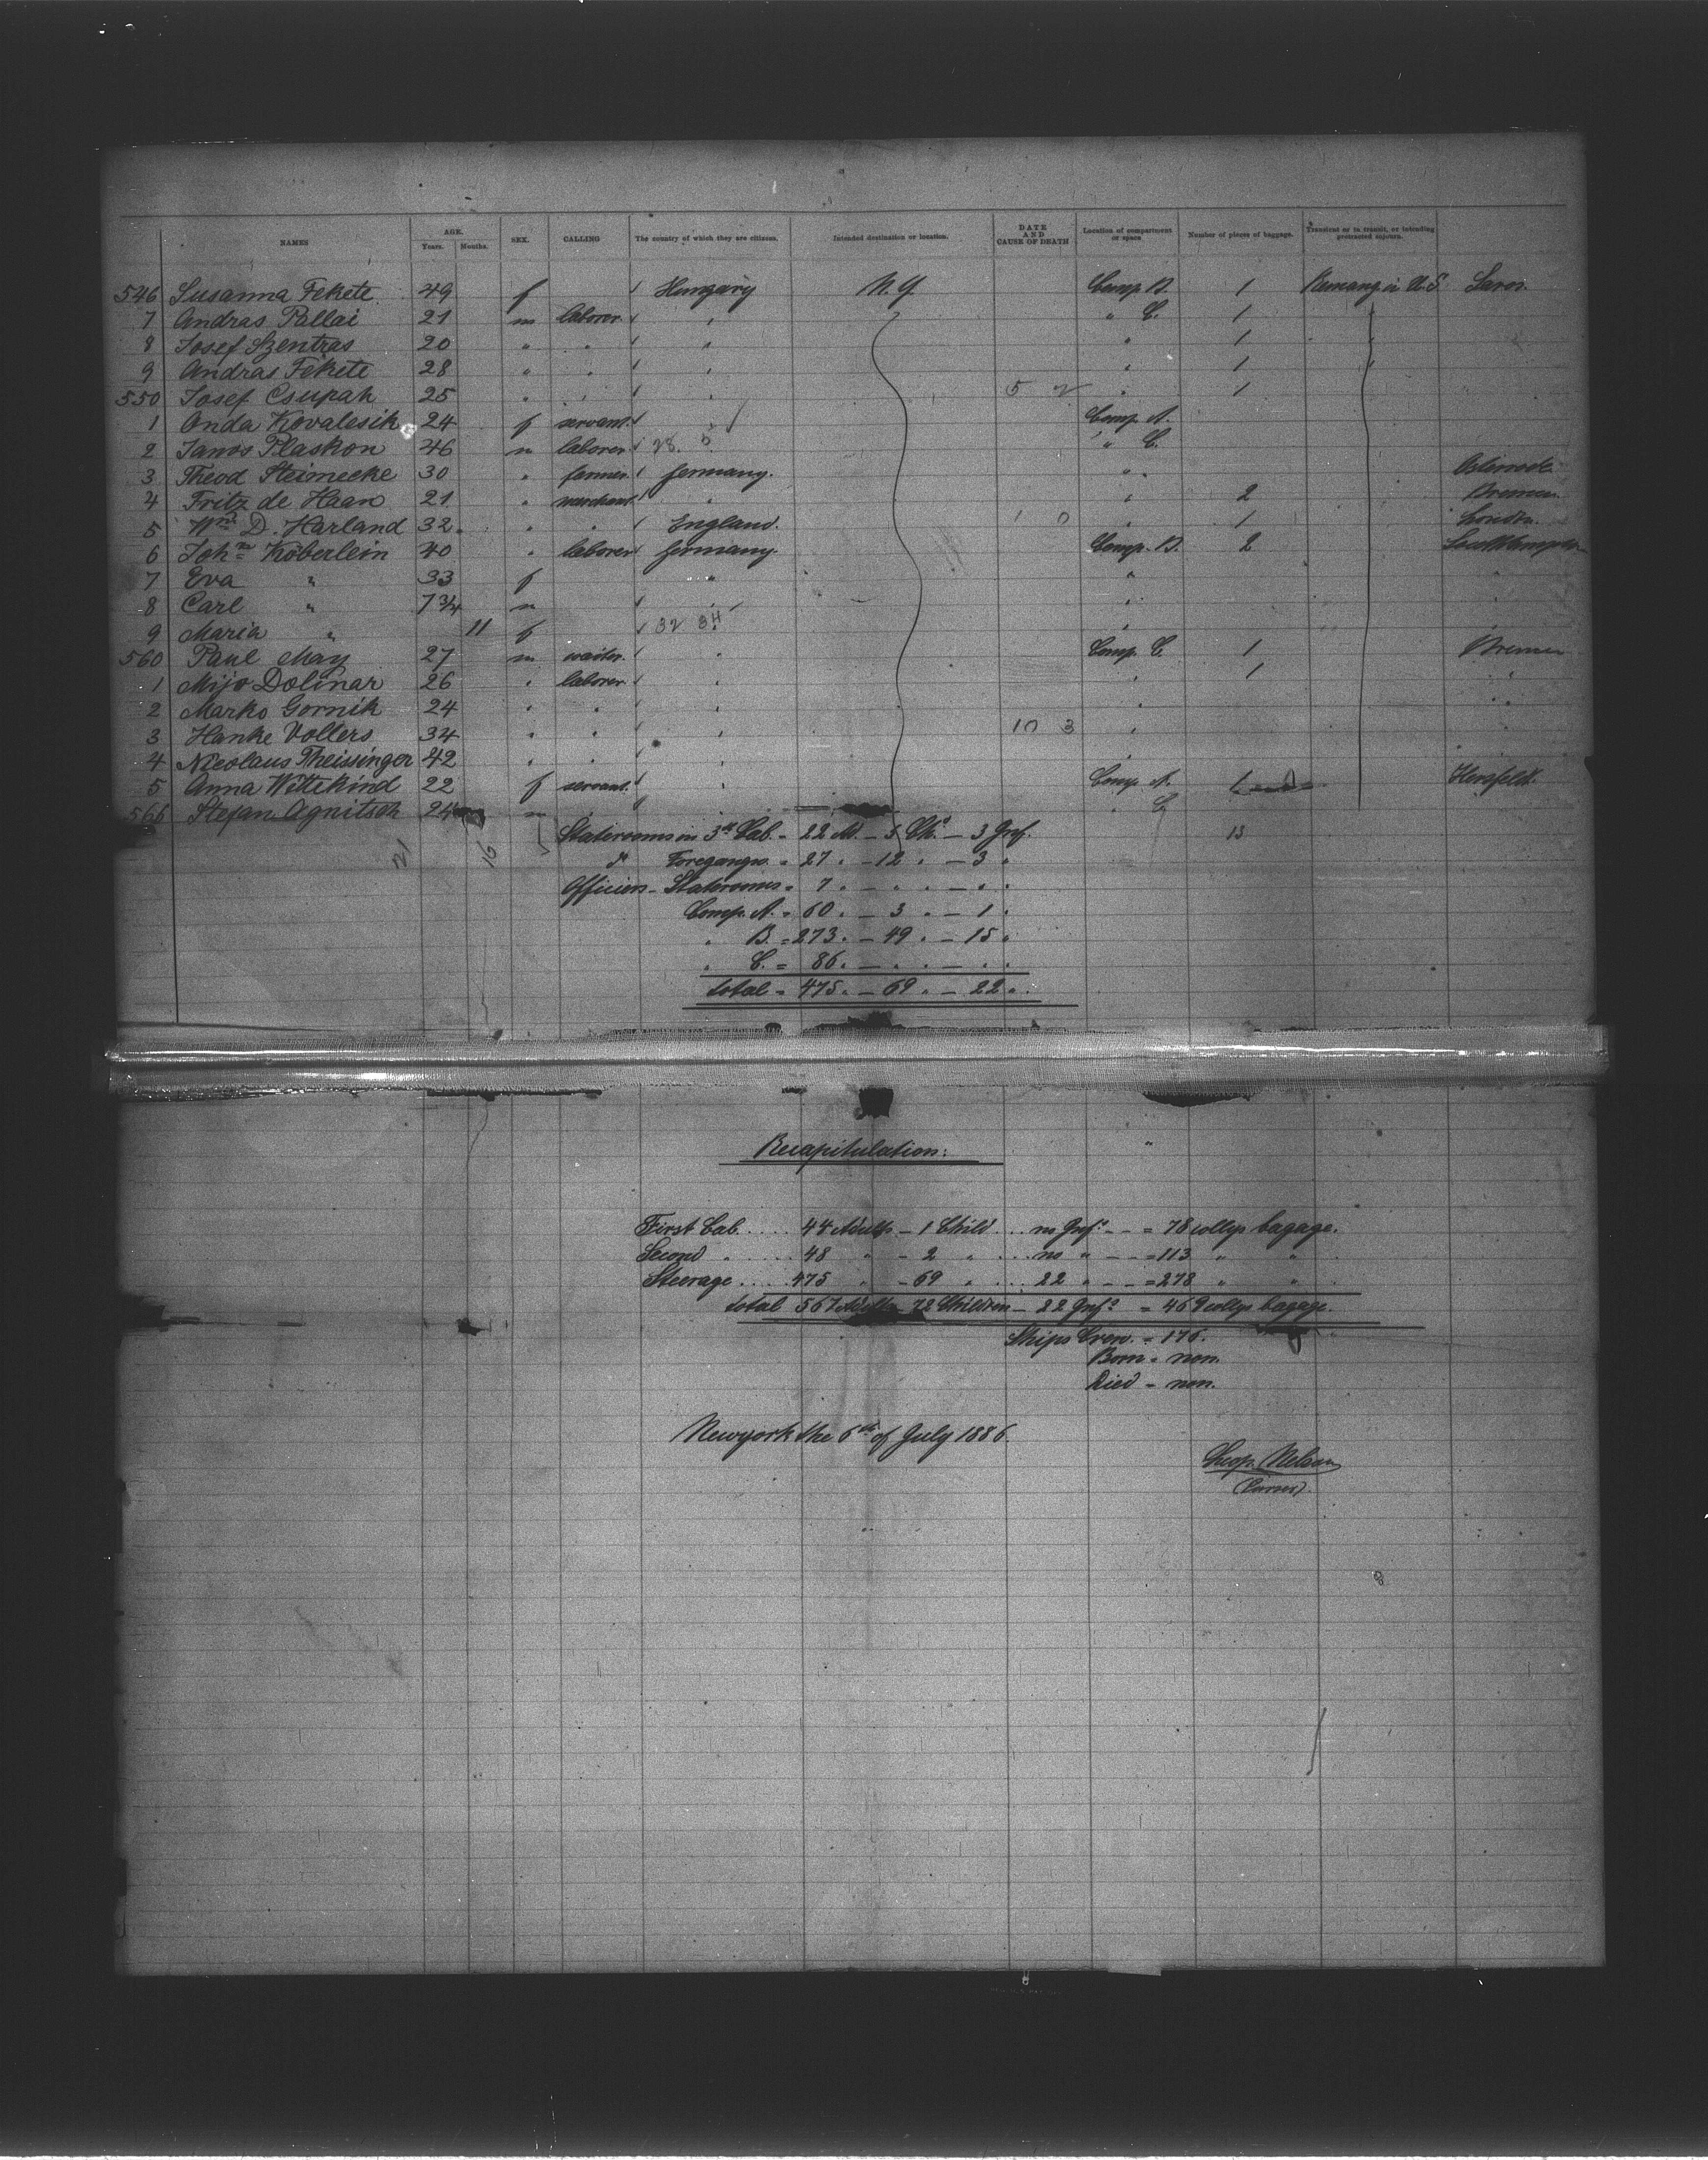 NAMES AGE. Years. Months. SEX. CALLING The country of which they are citizens. Intended destination or location. DATE AND CAUSE OF DEATH Location of compartment or space Number of pieces of baggage. Transient or in transit, or intending protracted sojourn.
546 Susanna Fekete 49 f Hungary N.Y. Comp. B. 1 Remang. in U.S. Saros.
7 Andras Pallai 21 m laborer " " C. 1
8 Josef Szentras 20 " " " " 1
9 Andras Fekete 28 " " " " 1
550 Josef Csupah 25 " " " 5 2 " 1
1 Anda Kovalesik 24 f servant. " Comp. A.
2 Janos Plaskon 46 m laborer 28. 5 " C.
3 Theod Steimecke 30 " farmer Germany. "
4 Fritz de Haan 21 " merchant " " 2 Bremen.
5 Wm D. Harland 32 " " England. 1 0 " 1 London.
6 Johnn Köberlein 40 " laborer Germany. Comp. B. 2 Southampton
7 Eva " 33 f " " "
8 Carl " 7 3/4 m " " "
9 Maria " 11 f 32 34 " "
560 Paul May 27 m waiter. " Comp. C. 1 Bremen
1 Mijo Dolinar 26 " laborer " " 1 "
2 Marko Gornik 24 " " " " "
3 Hanke Vollers 34 " " " 10 3 " "
4 Nicolaus Theissinger 42 " " " "
5 Anna Wittekind 22 f servant. " Comp. A. 1 Hersfeld.
566 Stefan Agnitsch 24 m " " C.
Staterooms in 3rd Cab. = 22 Ad. — 5 Ch. — 3 Inf. 13
21 16 5 do Foregangw. = 27 " — 12 " — 3 "
Officiers - Staterooms = 7 " — " " — " "
Comp. A. = 60 " — 3 " — 1 "
" B. = 273 " — 49 " — 15 "
" C. = 86 " — " " — " "
total = 475 " — 69 " — 22 "
Recapitulation:
First Cab. .... 44 Adults — 1 Child ... no Inf. — — = 78 collys bagage.
Second " .... 48 " — 2 " ... no " — — = 113 " "
Steerage .... 475 " — 69 " ... 22 " — — = 278 " "
total 567 Adults — 72 Children — 22 Inf. = 469 collys bagage.
Ships Crew. = 176.
Born = non.
Died = non.
Newyork the 6th of July 1886.
Leop. Nelson